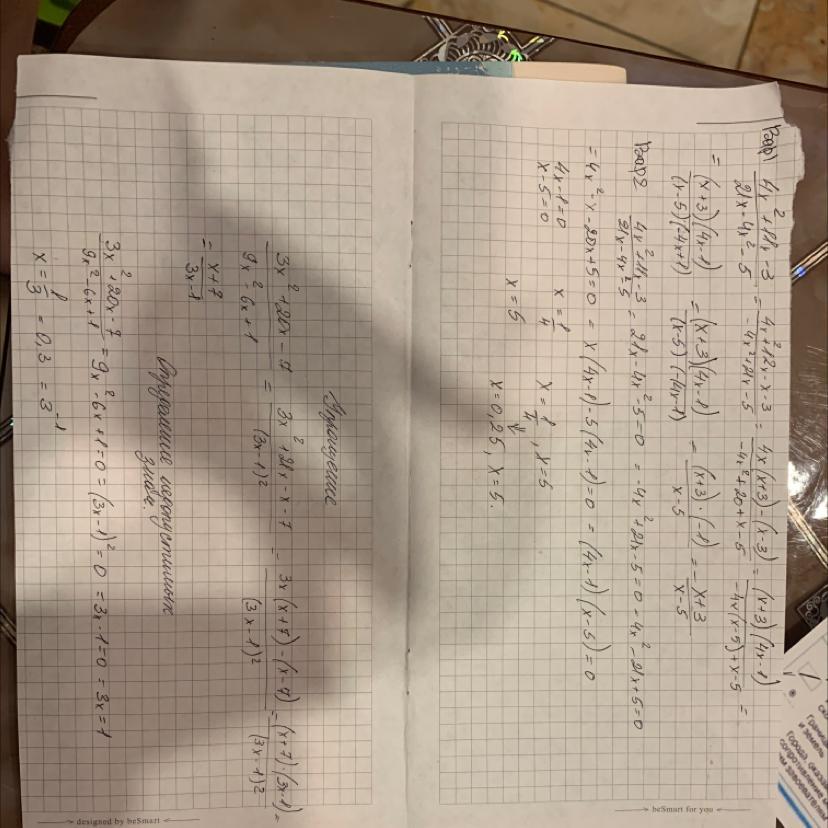 Вар1 (4x²+11x-3)/(21x-4x²-5) = (4x²+12x-x-3)/(-4x²+21x-5) = (4x(x+3)-(x-3))/(-4x²+20+x-5) = ((x+3)(4x-1))/(-4x(x-5)+x-5) =
= ((x+3)(4x-1))/((x-5)(-4x+1)) = ((x+3)(4x-1))/((x-5)(-(4x-1))) = ((x+3)·(-1))/(x-5) = -(x+3)/(x-5)
Вар2 (4x²+11x-3)/(21x-4x²-5) = 21x-4x²-5=0 = -4x²+21x-5=0 = 4x²-21x+5=0
= 4x²-x-20x+5=0 = x(4x-1)-5(4x-1)=0 = (4x-1)(x-5)=0
4x-1=0 x=1/4 x=1/4, x=5
x-5=0 x=5 x=0,25, x=5.
beSmart for you
Упрощение
(3x²+20x-7)/(9x²-6x+1) = (3x²+21x-x-7)/(3x-1)² = (3x(x+7)-(x-7))/(3x-1)² = ((x+7)·(3x-1))/(3x-1)² =
= (x+7)/(3x-1)
недопустимых
(3x²+20x-7)/(9x²-6x+1) = 9x²-6x+1=0 = (3x-1)²=0 = 3x-1=0 = 3x=1
x=1/3 = 0,3 = 3⁻¹
designed by beSmart